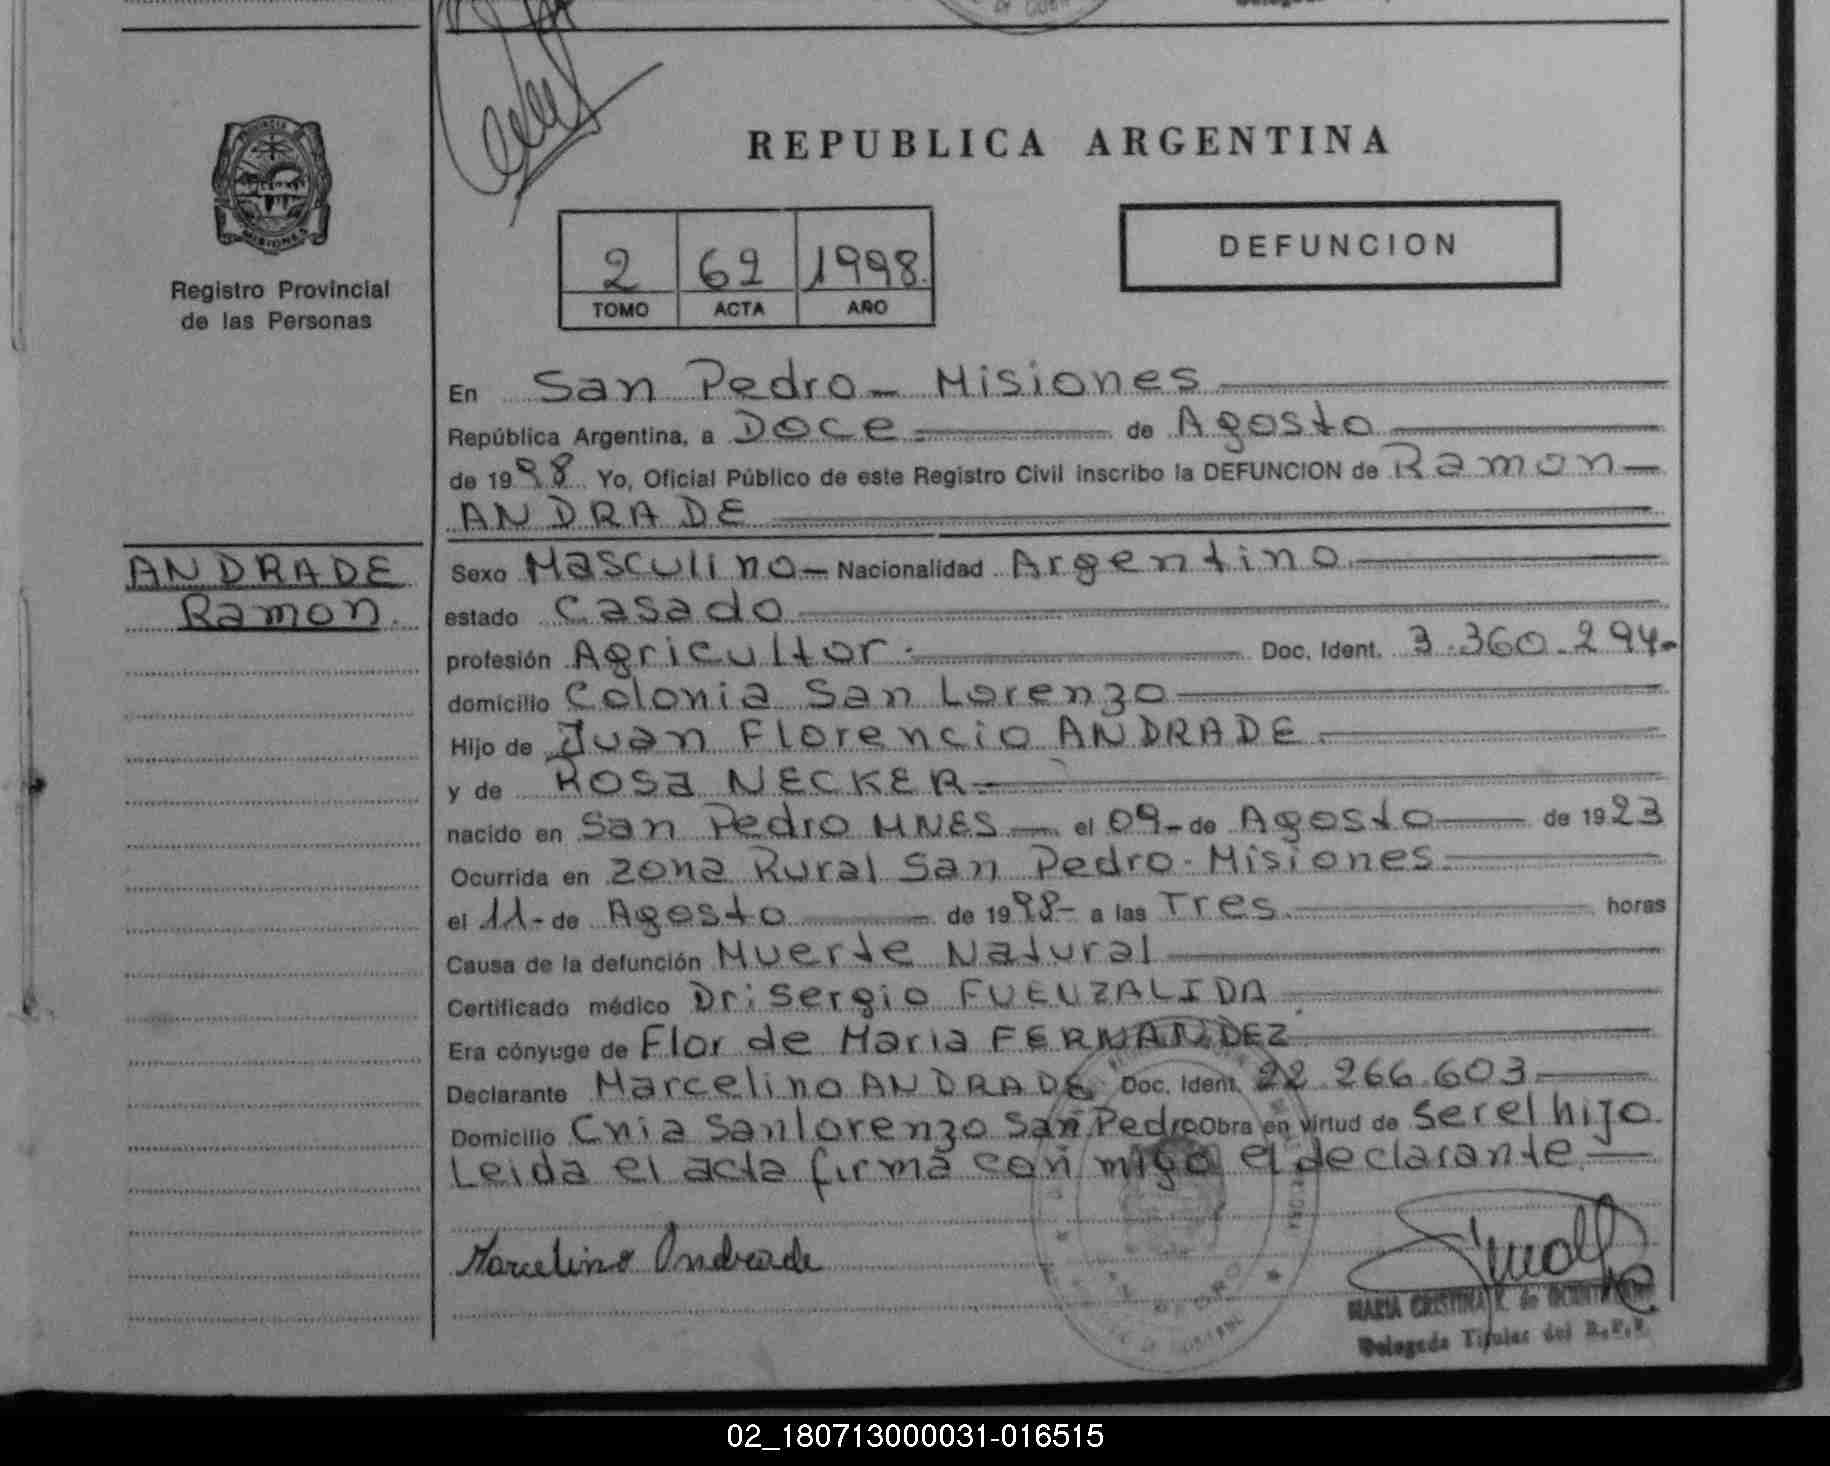 REPUBLICA ARGENTINA
PROVINCIA DE
MISIONES
Registro Provincial
de las Personas
2 62 1998
TOMO ACTA AÑO
DEFUNCION
En San Pedro - Misiones
República Argentina, a Doce de Agosto
de 1998 Yo, Oficial Público de este Registro Civil inscribo la DEFUNCION de Ramon
ANDRADE
ANDRADE
Ramon
Sexo Masculino - Nacionalidad Argentino
estado Casado
profesión Agricultor. Doc. Ident. 3.360.294-
domicilio Colonia San Lorenzo
Hijo de Juan Florencio ANDRADE
y de ROSA NECKER
nacido en San Pedro MNES - el 09- de Agosto de 1923
Ocurrida en zona Rural San Pedro - Misiones
el 11- de Agosto de 1998- a las Tres horas
Causa de la defunción Muerte Natural
Certificado médico Dr: Sergio FUENZALIDA
Era cónyuge de Flor de Maria FERNANDEZ
Declarante Marcelino ANDRADE Doc. Ident. 22.266.603
Domicilio Cnia San lorenzo San Pedro Obra en virtud de Ser el hijo
Leida el acta firma con migo el declarante
Marcelino Andrade
MARIA CRISTINA K. de
Delegada Titular del R.P.P.
02_180713000031-016515